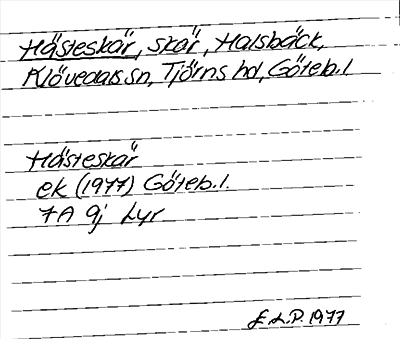 Hästeskär, skär, Halsbäck,
Klövedals sn, Tjörns hd, Göteb. l.
Hästeskär
ek (1977) Göteb. l.
7A 9j Lyr
E.L.P. 1977